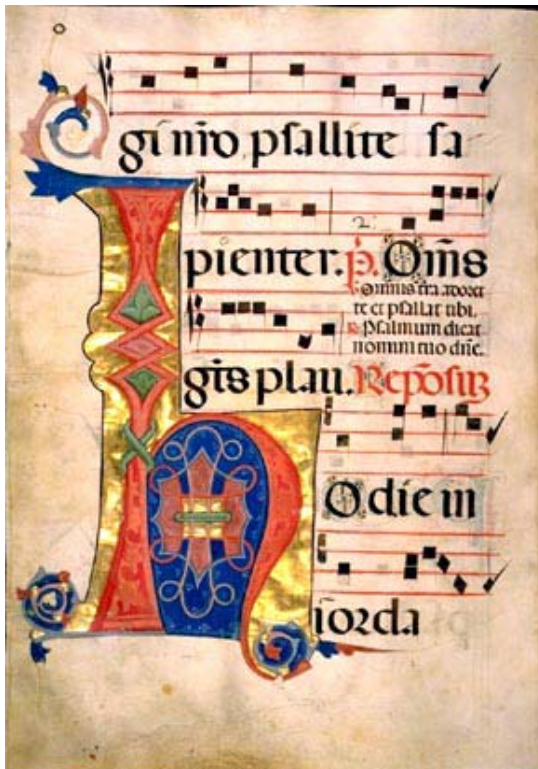 gi nr̄o psallite sa
pienter. p̄. Om̄s
2.
Omnis tr̄a adoret
te et psallat tibi.
Psalmum dicat
nomini tuo dn̄e.
gēts plau. Rep̄osiꝫ
Hodie in
iorda